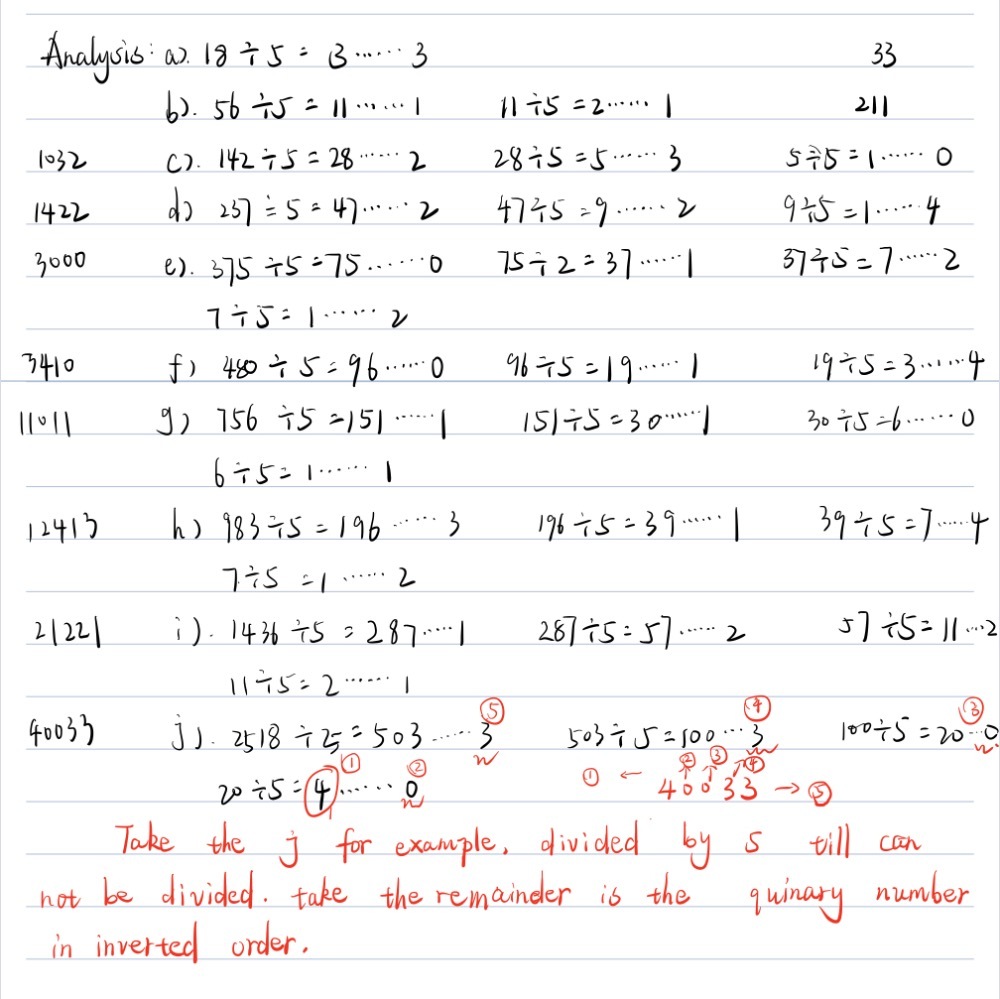 Analysis: a). 18 ÷ 5 = 3 ······ 3 33
b). 56 ÷ 5 = 11 ······ 1 11 ÷ 5 = 2 ······ 1 211
1032 c). 142 ÷ 5 = 28 ······ 2 28 ÷ 5 = 5 ······ 3 5 ÷ 5 = 1 ······ 0
1422 d) 237 ÷ 5 = 47 ······ 2 47 ÷ 5 = 9 ······ 2 9 ÷ 5 = 1 ······ 4
3000 e). 375 ÷ 5 = 75 ······ 0 75 ÷ 2 = 37 ······ 1 37 ÷ 5 = 7 ······ 2
7 ÷ 5 = 1 ······ 2
3410 f) 480 ÷ 5 = 96 ······ 0 96 ÷ 5 = 19 ······ 1 19 ÷ 5 = 3 ······ 4
11011 g) 756 ÷ 5 = 151 ······ 1 151 ÷ 5 = 30 ······ 1 30 ÷ 5 = 6 ······ 0
6 ÷ 5 = 1 ······ 1
12413 h) 983 ÷ 5 = 196 ······ 3 196 ÷ 5 = 39 ······ 1 39 ÷ 5 = 7 ······ 4
7 ÷ 5 = 1 ······ 2
21221 i). 1436 ÷ 5 = 287 ····· 1 287 ÷ 5 = 57 ······ 2 57 ÷ 5 = 11 ··· 2
11 ÷ 5 = 2 ······ 1
⑤ ④ ③
40033 j). 2518 ÷ 25 = 503 ······ 3 503 ÷ 5 = 100 ··· 3 100 ÷ 5 = 20 ·· 0
① ② ② ③ ④
20 ÷ 5 = 4 ······ 0 ① ← 40033 → ⑤
Take the j for example, divided by 5 till can
not be divided. take the remainder is the quinary number
in inverted order.